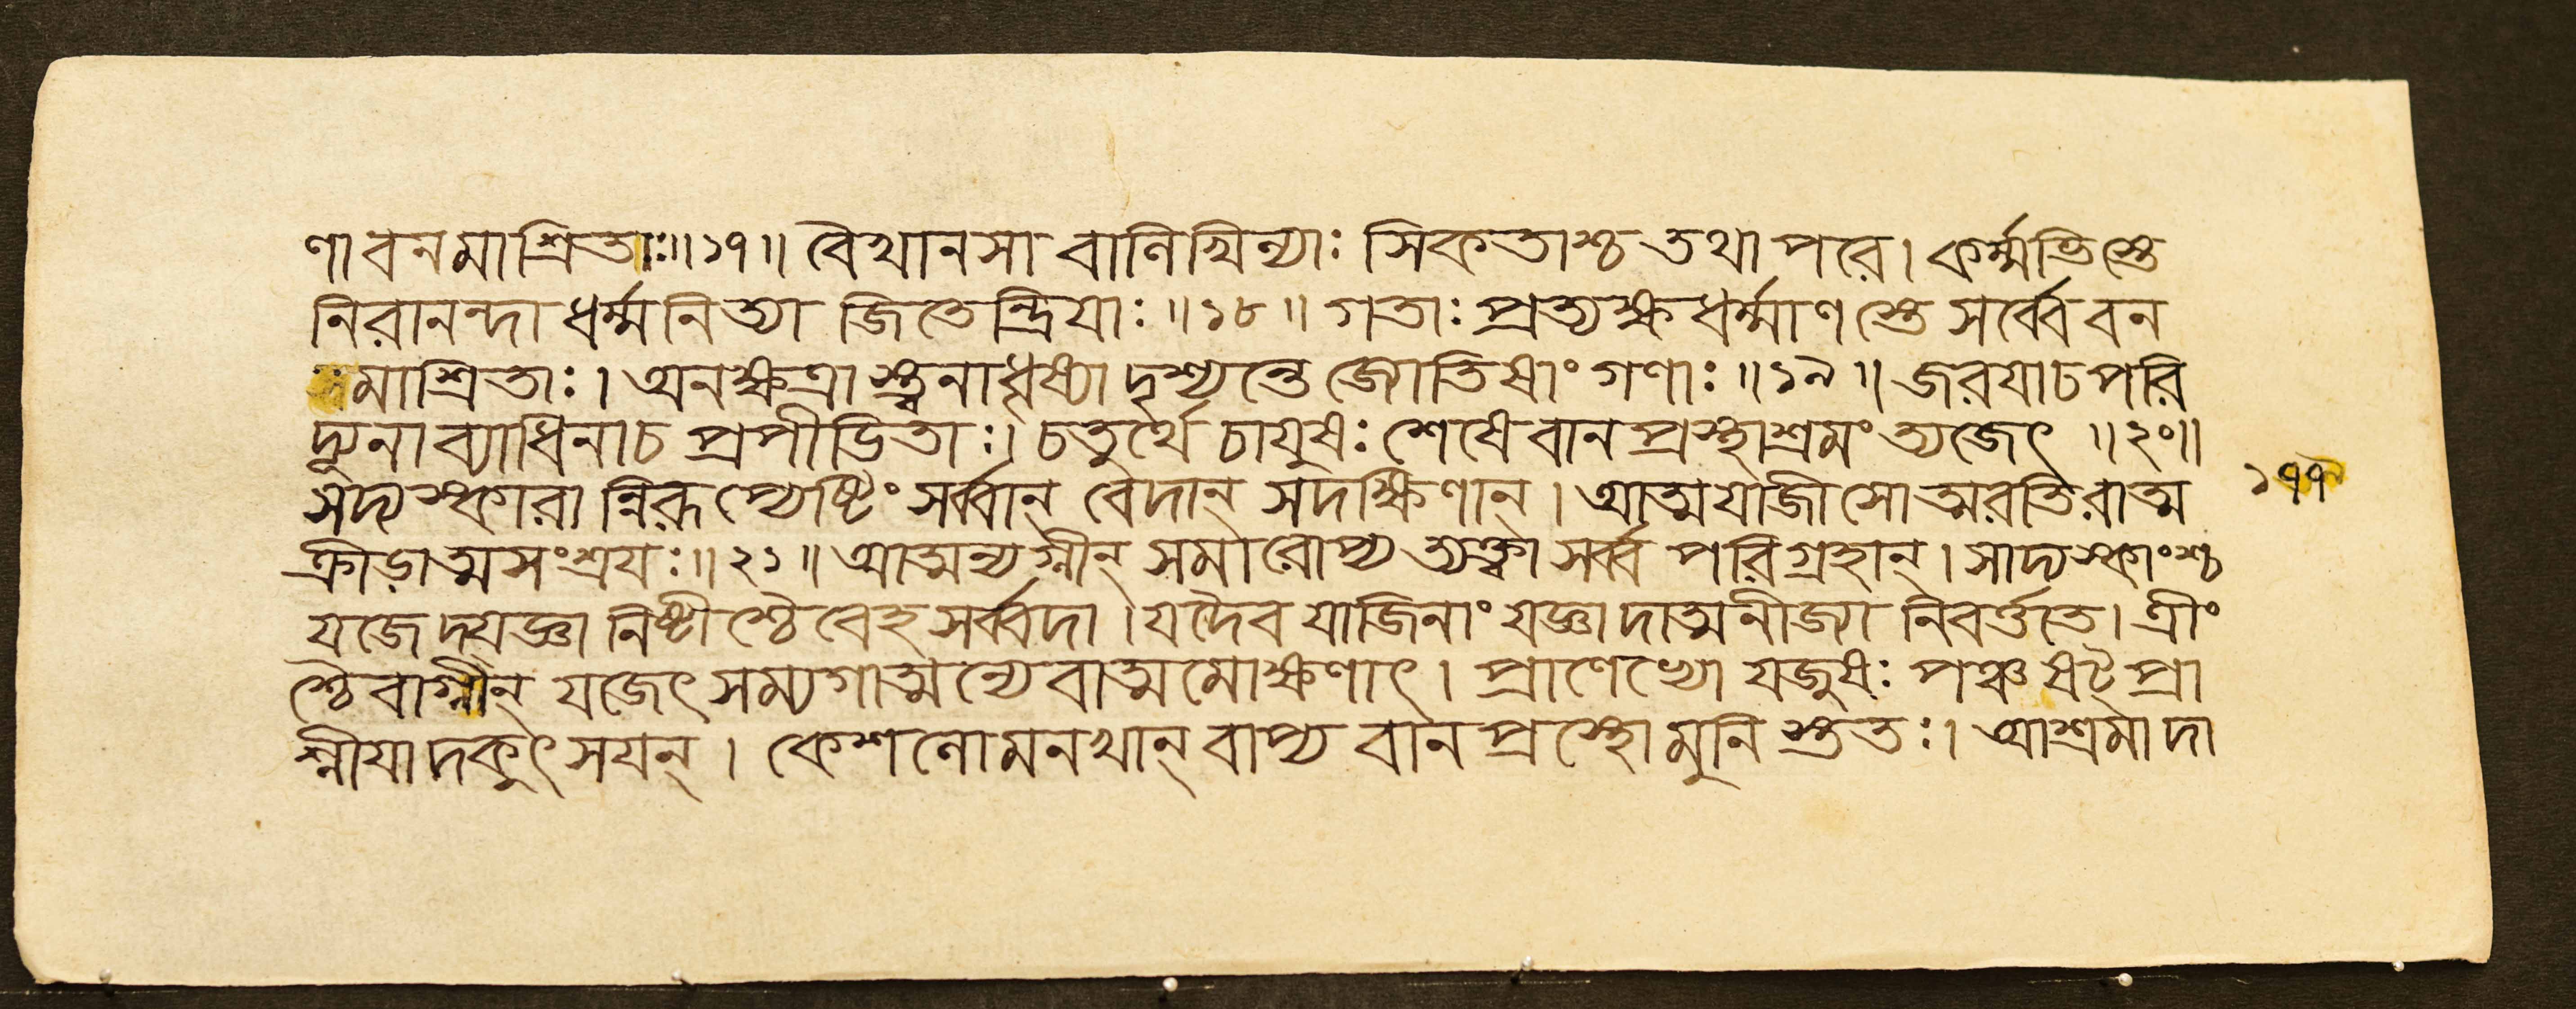 ণা বনমাশ্রিতাঃ॥১৭॥ বৈখানসা বালিখিল্যাঃ সিকতাশ্চ তথাপরে। কর্ম্মভিস্তে
নিরানন্দা ধর্ম্মনিত্যা জিতেন্দ্রিযাঃ॥১৮॥ গতাঃ প্রত্যক্ষধর্ম্মাণস্তে সর্ব্বে বন
মাশ্রিতাঃ। অনক্ষত্রাস্ত্বনাধৃষ্যা দৃশ্যন্তে জ্যোতিষাং গণাঃ॥১৯॥ জরযাচ পরি
দ্যূনা ব্যাধিনাচ প্রপীডিতাঃ। চতুর্থে চাযুষঃ শেষে বানপ্রস্থাশ্রমং ত্যজেৎ॥২০॥
সদ্যস্কারান্নিরূপ্যেষ্টিং সর্ব্বান্ বেদান্ সদক্ষিণান্। আত্মযাজী সোত্মরতিরাত্ম
ক্রীড়াত্মসংশ্রযঃ॥২১॥ আত্মন্যগ্নীন্ সমারোপ্য ত্যক্ত্বা সর্ব্বপরিগ্রহান্। সাদ্যস্কাংশ্চ
যজেদ্যজ্ঞানিষ্টীশ্চৈবেহ সর্ব্বদা। যদৈব যাজিনাং যজ্ঞাদাত্মনীজ্যা নিবর্ত্ততে। ত্রীং
শ্চৈবাগ্নীন্ যজেৎ সম্যগাত্মন্যেবাত্মমোক্ষণাৎ। প্রাণেভ্যো যজুষঃ পঞ্চ ষট্ প্রা
শ্নীযাদকুৎসযন্। কেশলোমনখান্ বাপ্য বানপ্রস্থো মুনিস্ততঃ। আশ্রমাদা
১৭৭